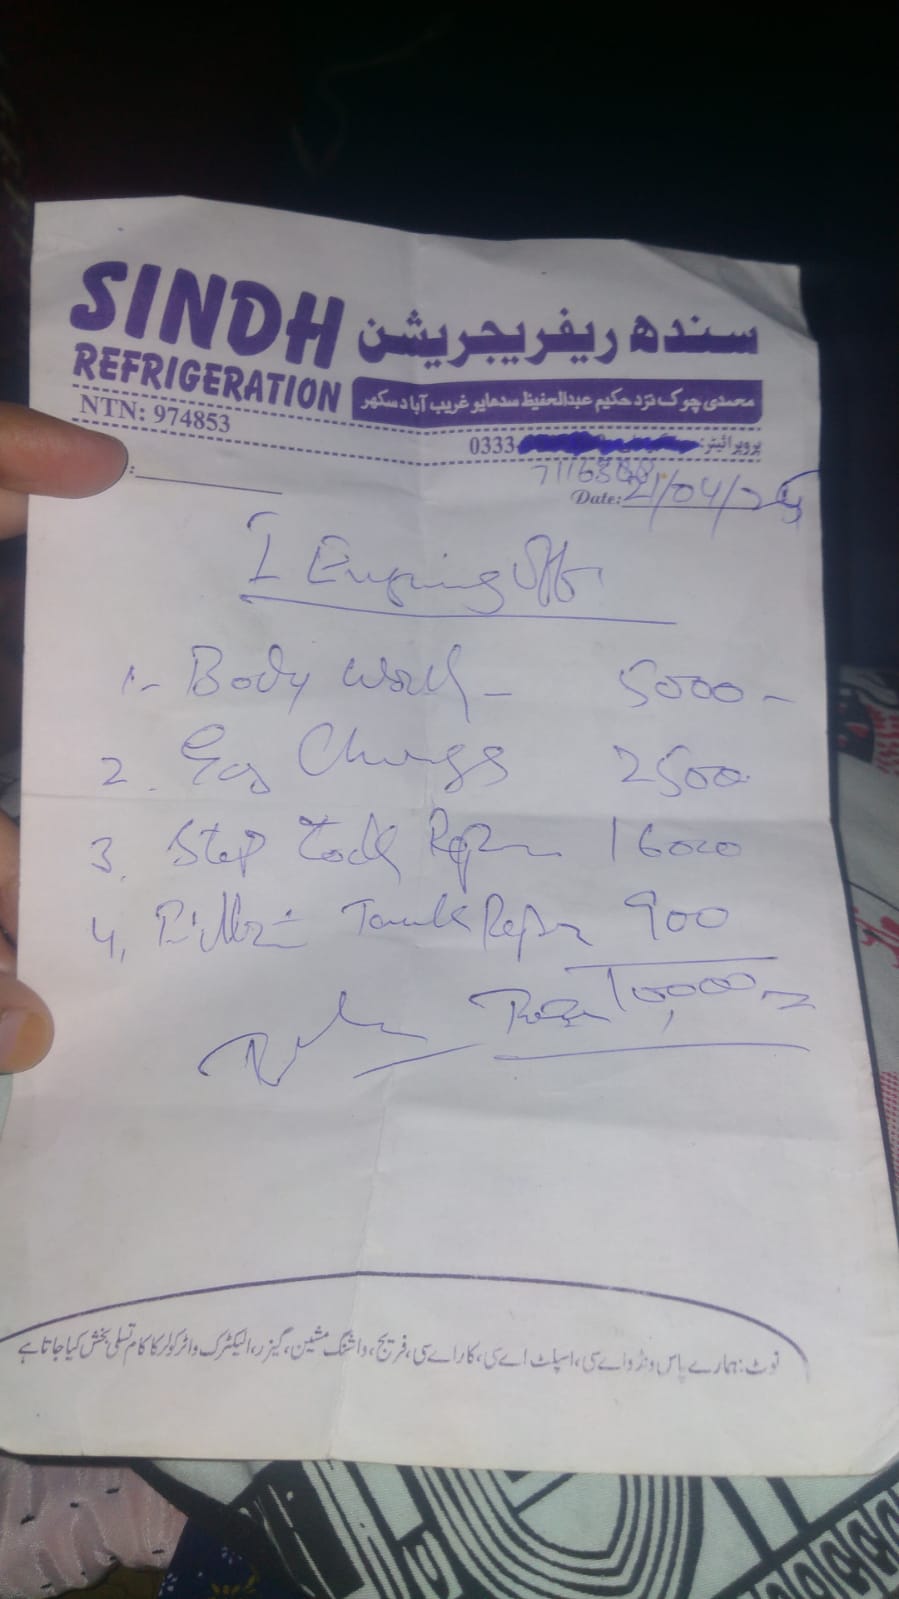 SINDH
REFRIGERATION
سندھ ریفریجریشن
محمدی چوک نزد حکیم عبدالحفیظ سدھایو غریب آباد سکھر
NTN: 974853
پروپرائیٹر:
0333
Date: 21/04/25
1- Body Work - 5000-
2. Gas Charge 2500
3. Step 1600
4. Tank 900
10,000
نوٹ: ہمارے پاس ونڈو اے سی، اسپلٹ اے سی، کار اے سی، فریج، واشنگ مشین، گیزر، الیکٹرک واٹر کولر کا کام تسلی بخش کیا جاتا ہے